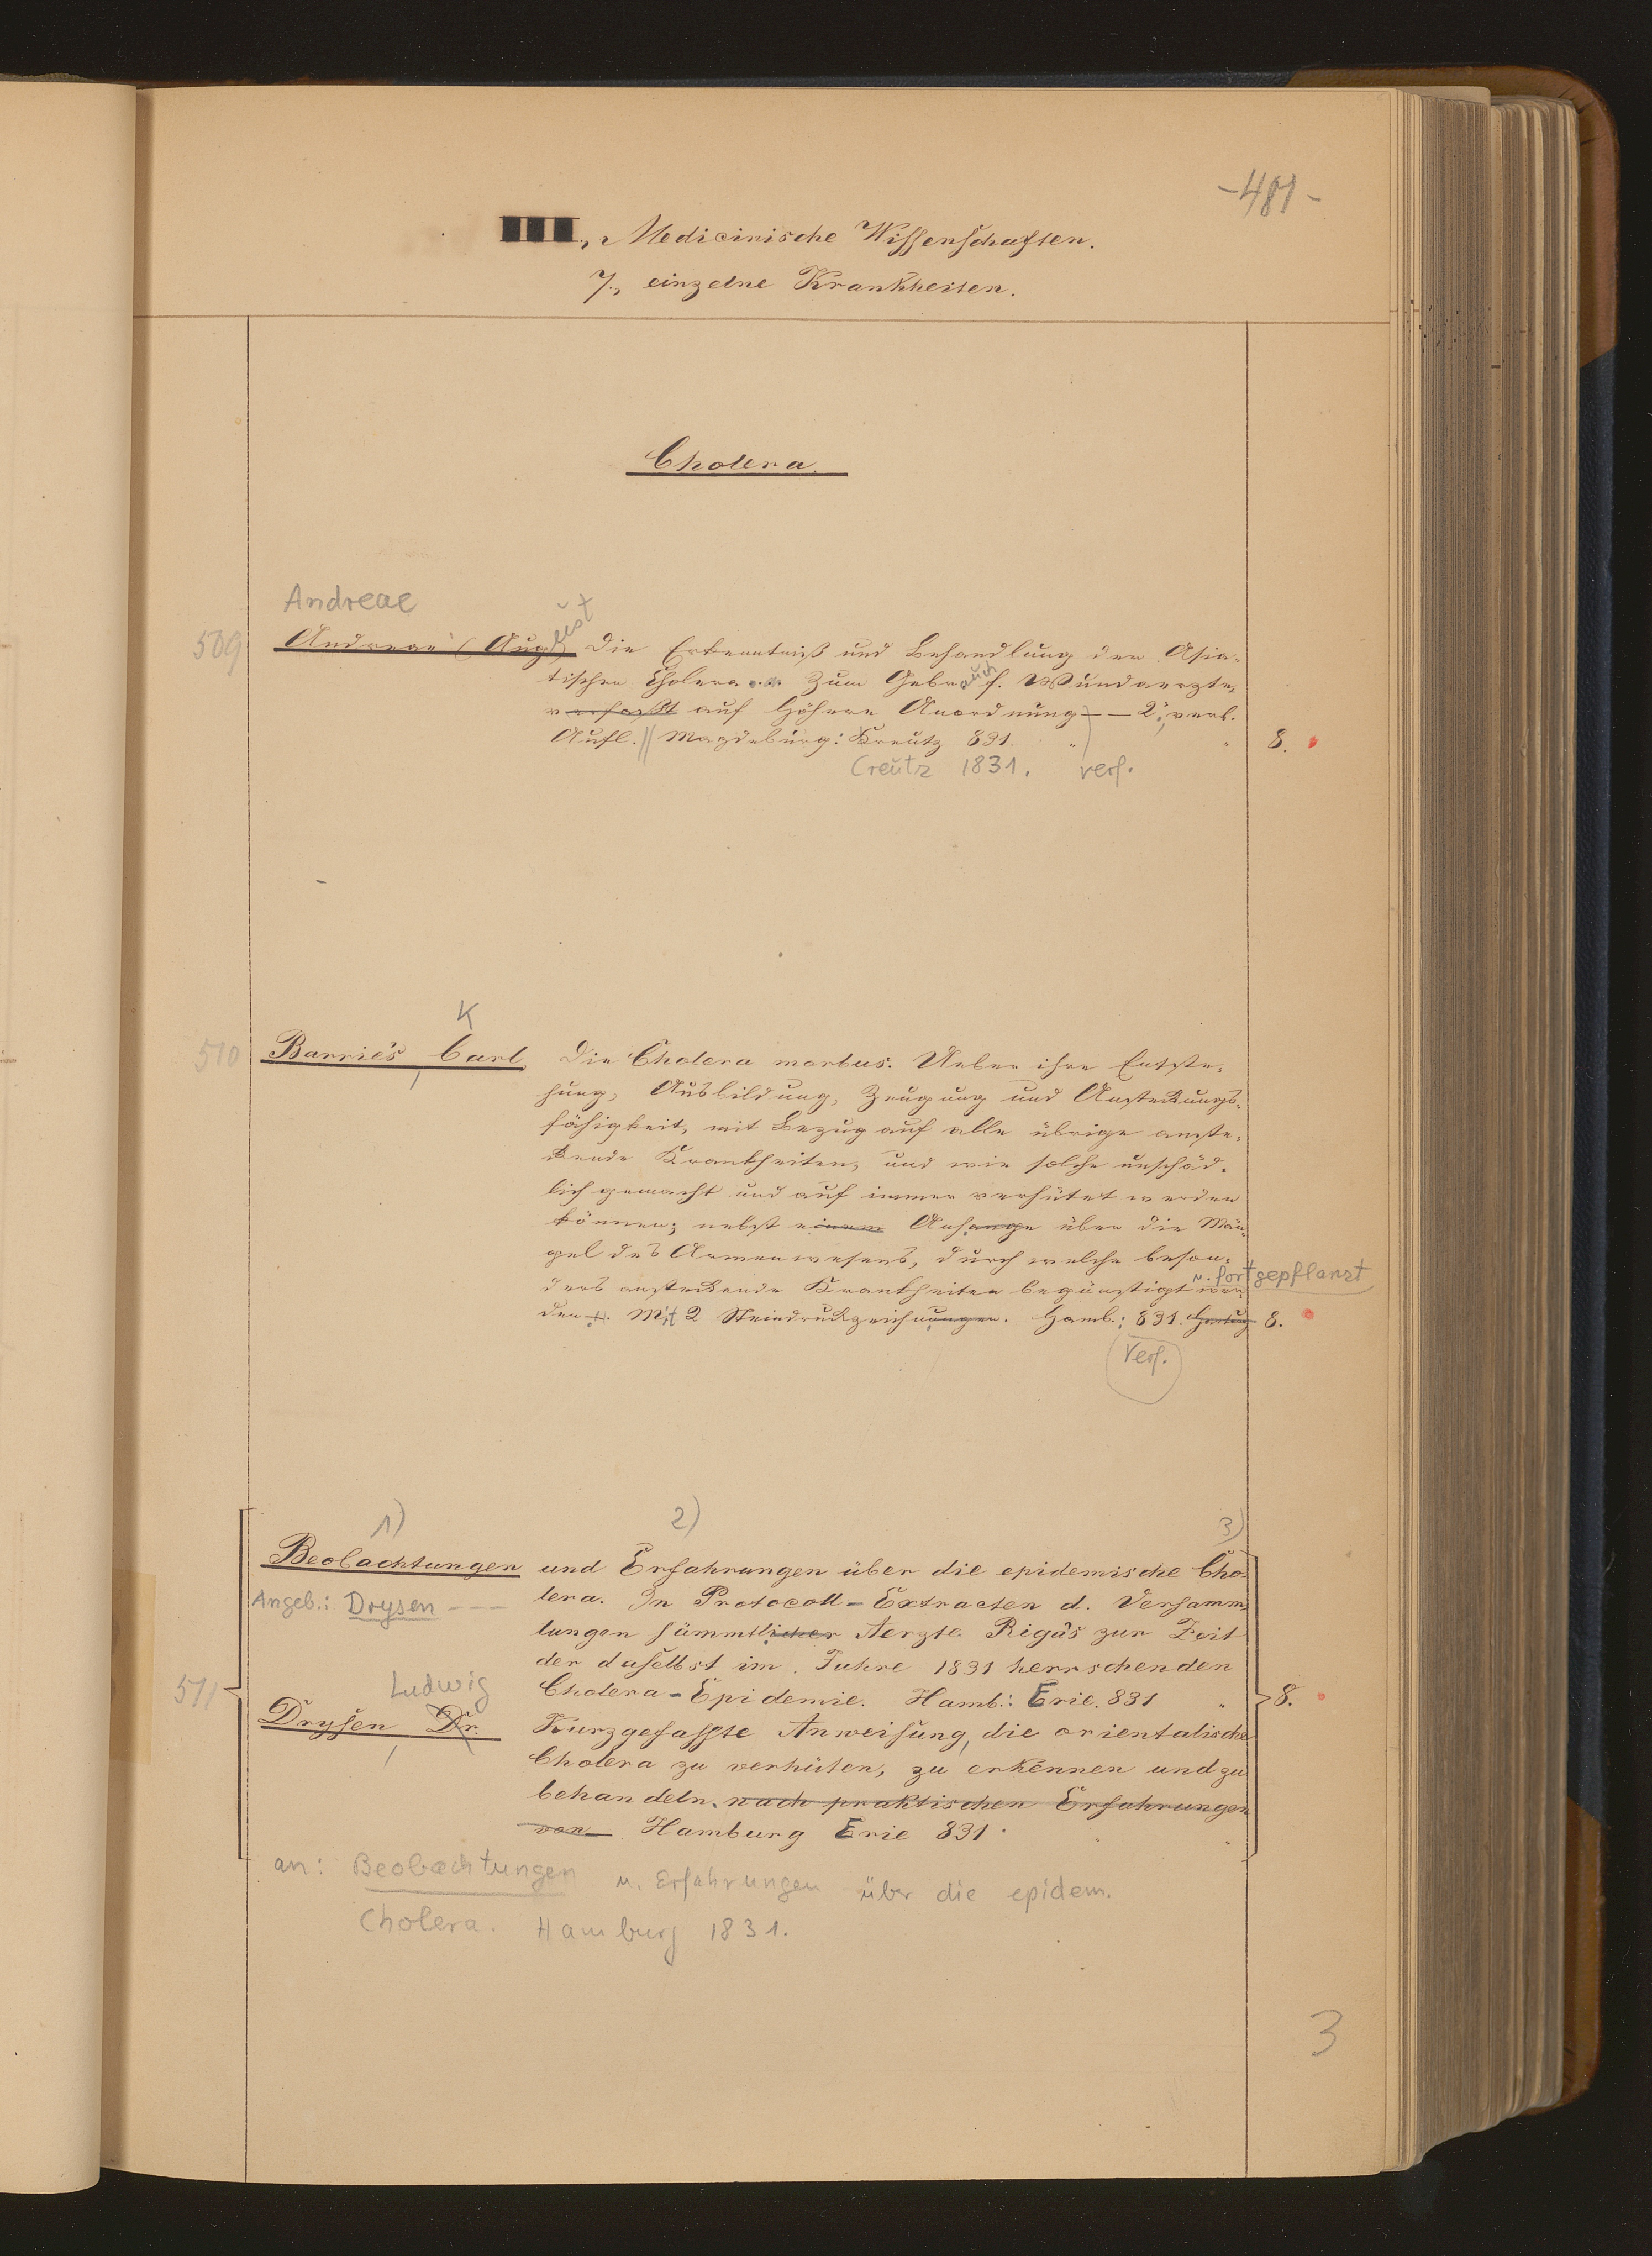 -481-
III., Medicinische Wissenschaften.
7., einzelne Krankheiten.
Cholera.
Andreae
509 Andreae (August) Die Erkenntniß und Behandlung der Asia-
tischen Cholera... Zum Gebrauch f. Wundaerzte,
verfaßt auf höhere Anordnung) — 2. verb.
Aufl. // Magdeburg: Kreutz 831. " " 8.
Creutz 1831. verf.
K
510 Barriés Carl, Die Cholera morbus. Ueber ihre Entste-
hung, Ausbildung, Zeugung und Ansteckungs-
fähigkeit, mit Bezug auf alle übrige anste-
ckende Krankheiten, und wie solche unschäd-
lich gemacht und auf immer verhütet werden
können; nebst einem Anhange über die Män-
gel des Armenwesens, durch welche beson-
u. fortgepflanzt
ders ansteckende Krankheiten begünstigt wer
den. Mit 2 Steindruckzeichnungen. Hamb.: 831. 8.
Verf.
1) 2) 3)
Beobachtungen und Erfahrungen über die epidemische Cho-
Angeb.: Drysen — lera. In Protocoll-Extracten d. Versamm-
lungen sämmtlicher Aerzte Riga's zur Zeit
der daselbst im Jahre 1831 herrschenden
511 Cholera-Epidemie. Hamb.: Erie. 831 " 8.
Ludwig
Drysen Dr. Kurzgefasste Anweisung, die orientalische
Cholera zu verhüten, zu erkennen und zu
behandeln. nach praktischen Erfahrungen
von Hamburg Erie 831. " "
an: Beobachtungen u. Erfahrungen über die epidem.
Cholera. Hamburg 1831.
3